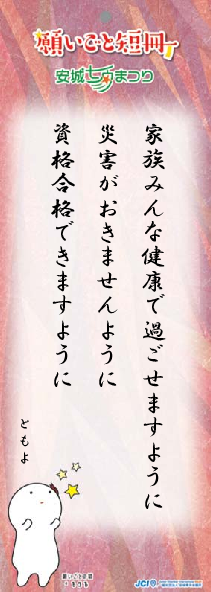 願いごと短冊
安城七夕まつり
家族みんな健康で過ごせますように
災害がおきませんように
資格合格できますように
ともよ
JCI